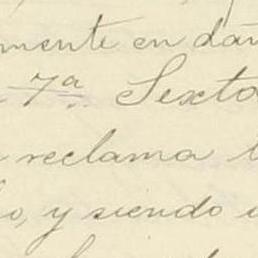 mente en dan
7ª Sexto
reclama
o, y siendo